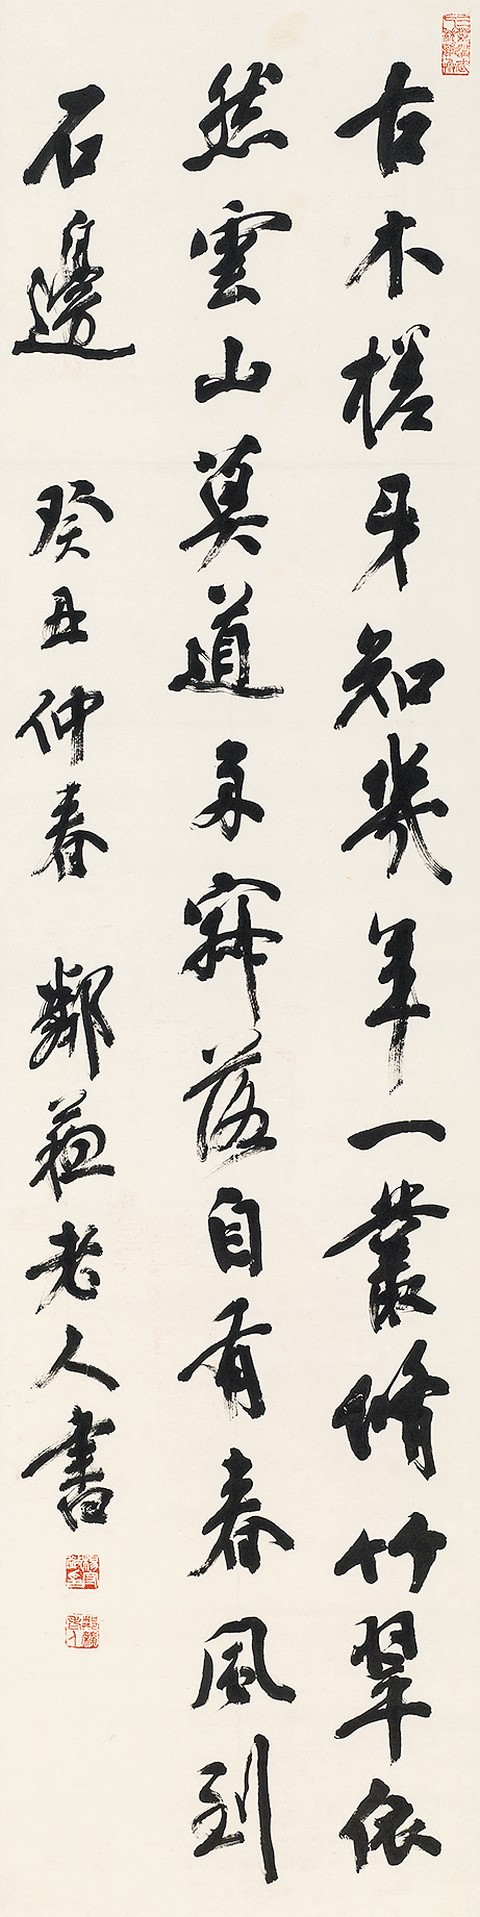 古木槎牙知幾年一叢脩竹翠依
然雲山莫道多寂落自有春風到
石邊
癸丑仲春 鄰蘇老人書